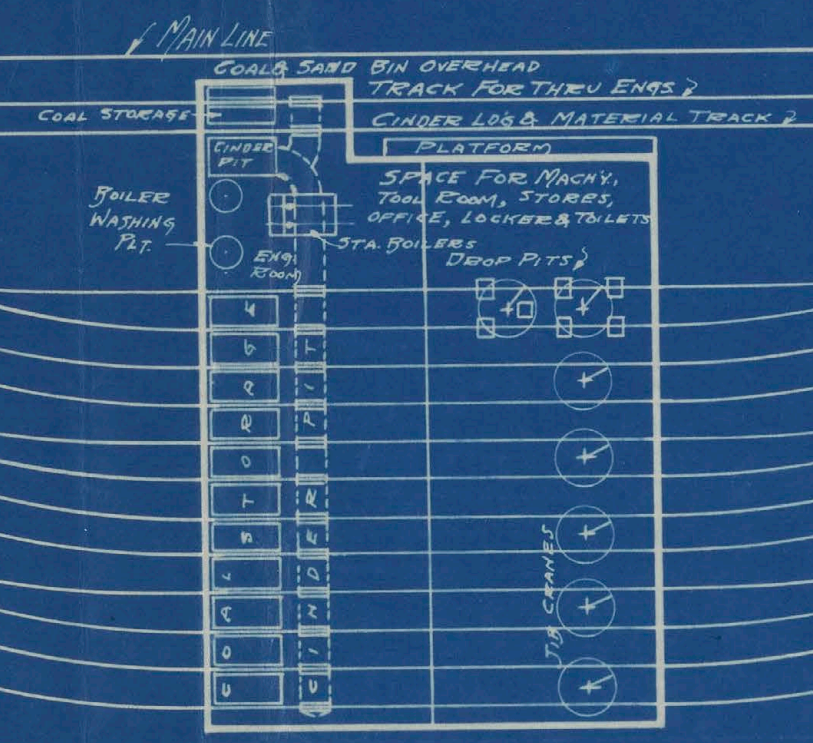 MAIN LINE
COAL & SAND BIN OVERHEAD
TRACK FOR THRU ENGS
COAL STORAGE
CINDER LO'G & MATERIAL TRACK
CINDER
PIT
PLATFORM
SPACE FOR MACHY,
TOOL ROOM, STORES,
OFFICE, LOCKER & TOILETS
BOILER
WASHING
PLT.
STA. BOILERS
ENG.
ROOM
DROP PITS
COAL STORAGE
CINDER PIT
JIB CRANES